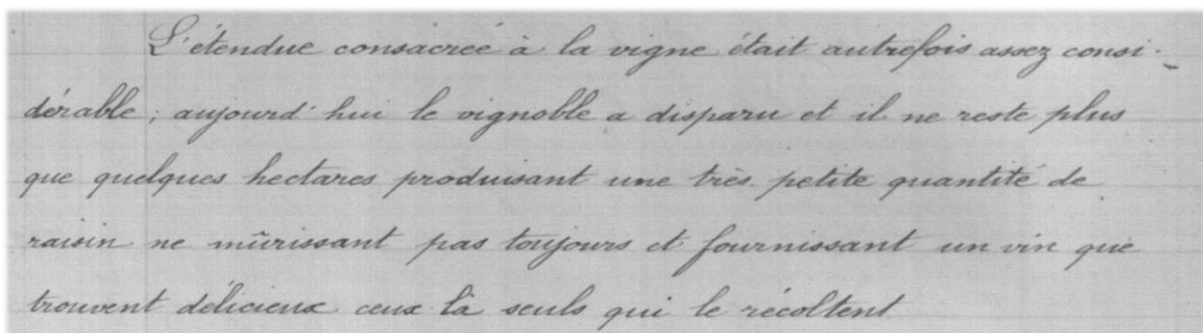 L'étendue consacrée à la vigne était autrefois assez consi-
dérable ; aujourd'hui le vignoble a disparu et il ne reste plus
que quelques hectares produisant une très petite quantité de
raisin ne mûrissant pas toujours et fournissant un vin que
trouvent délicieux ceux là seuls qui le récoltent